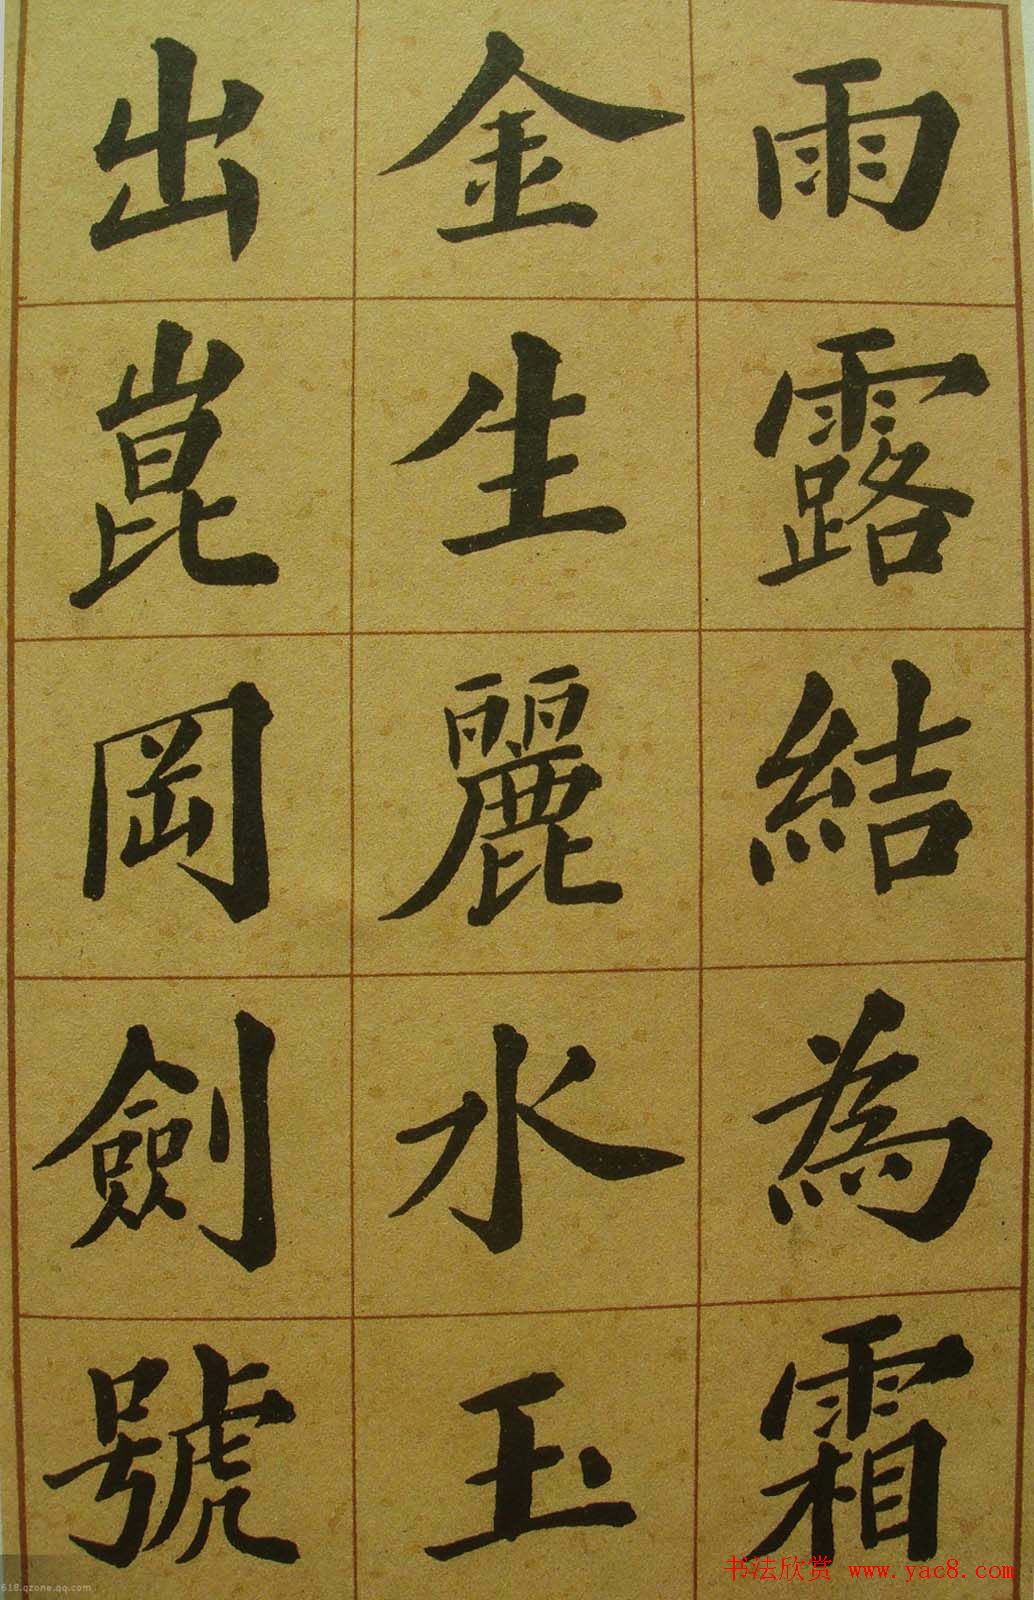 雨露結為霜
金生麗水玉
出崑岡劍號
书法欣赏 www.yac8.com
618.qzone.qq.com